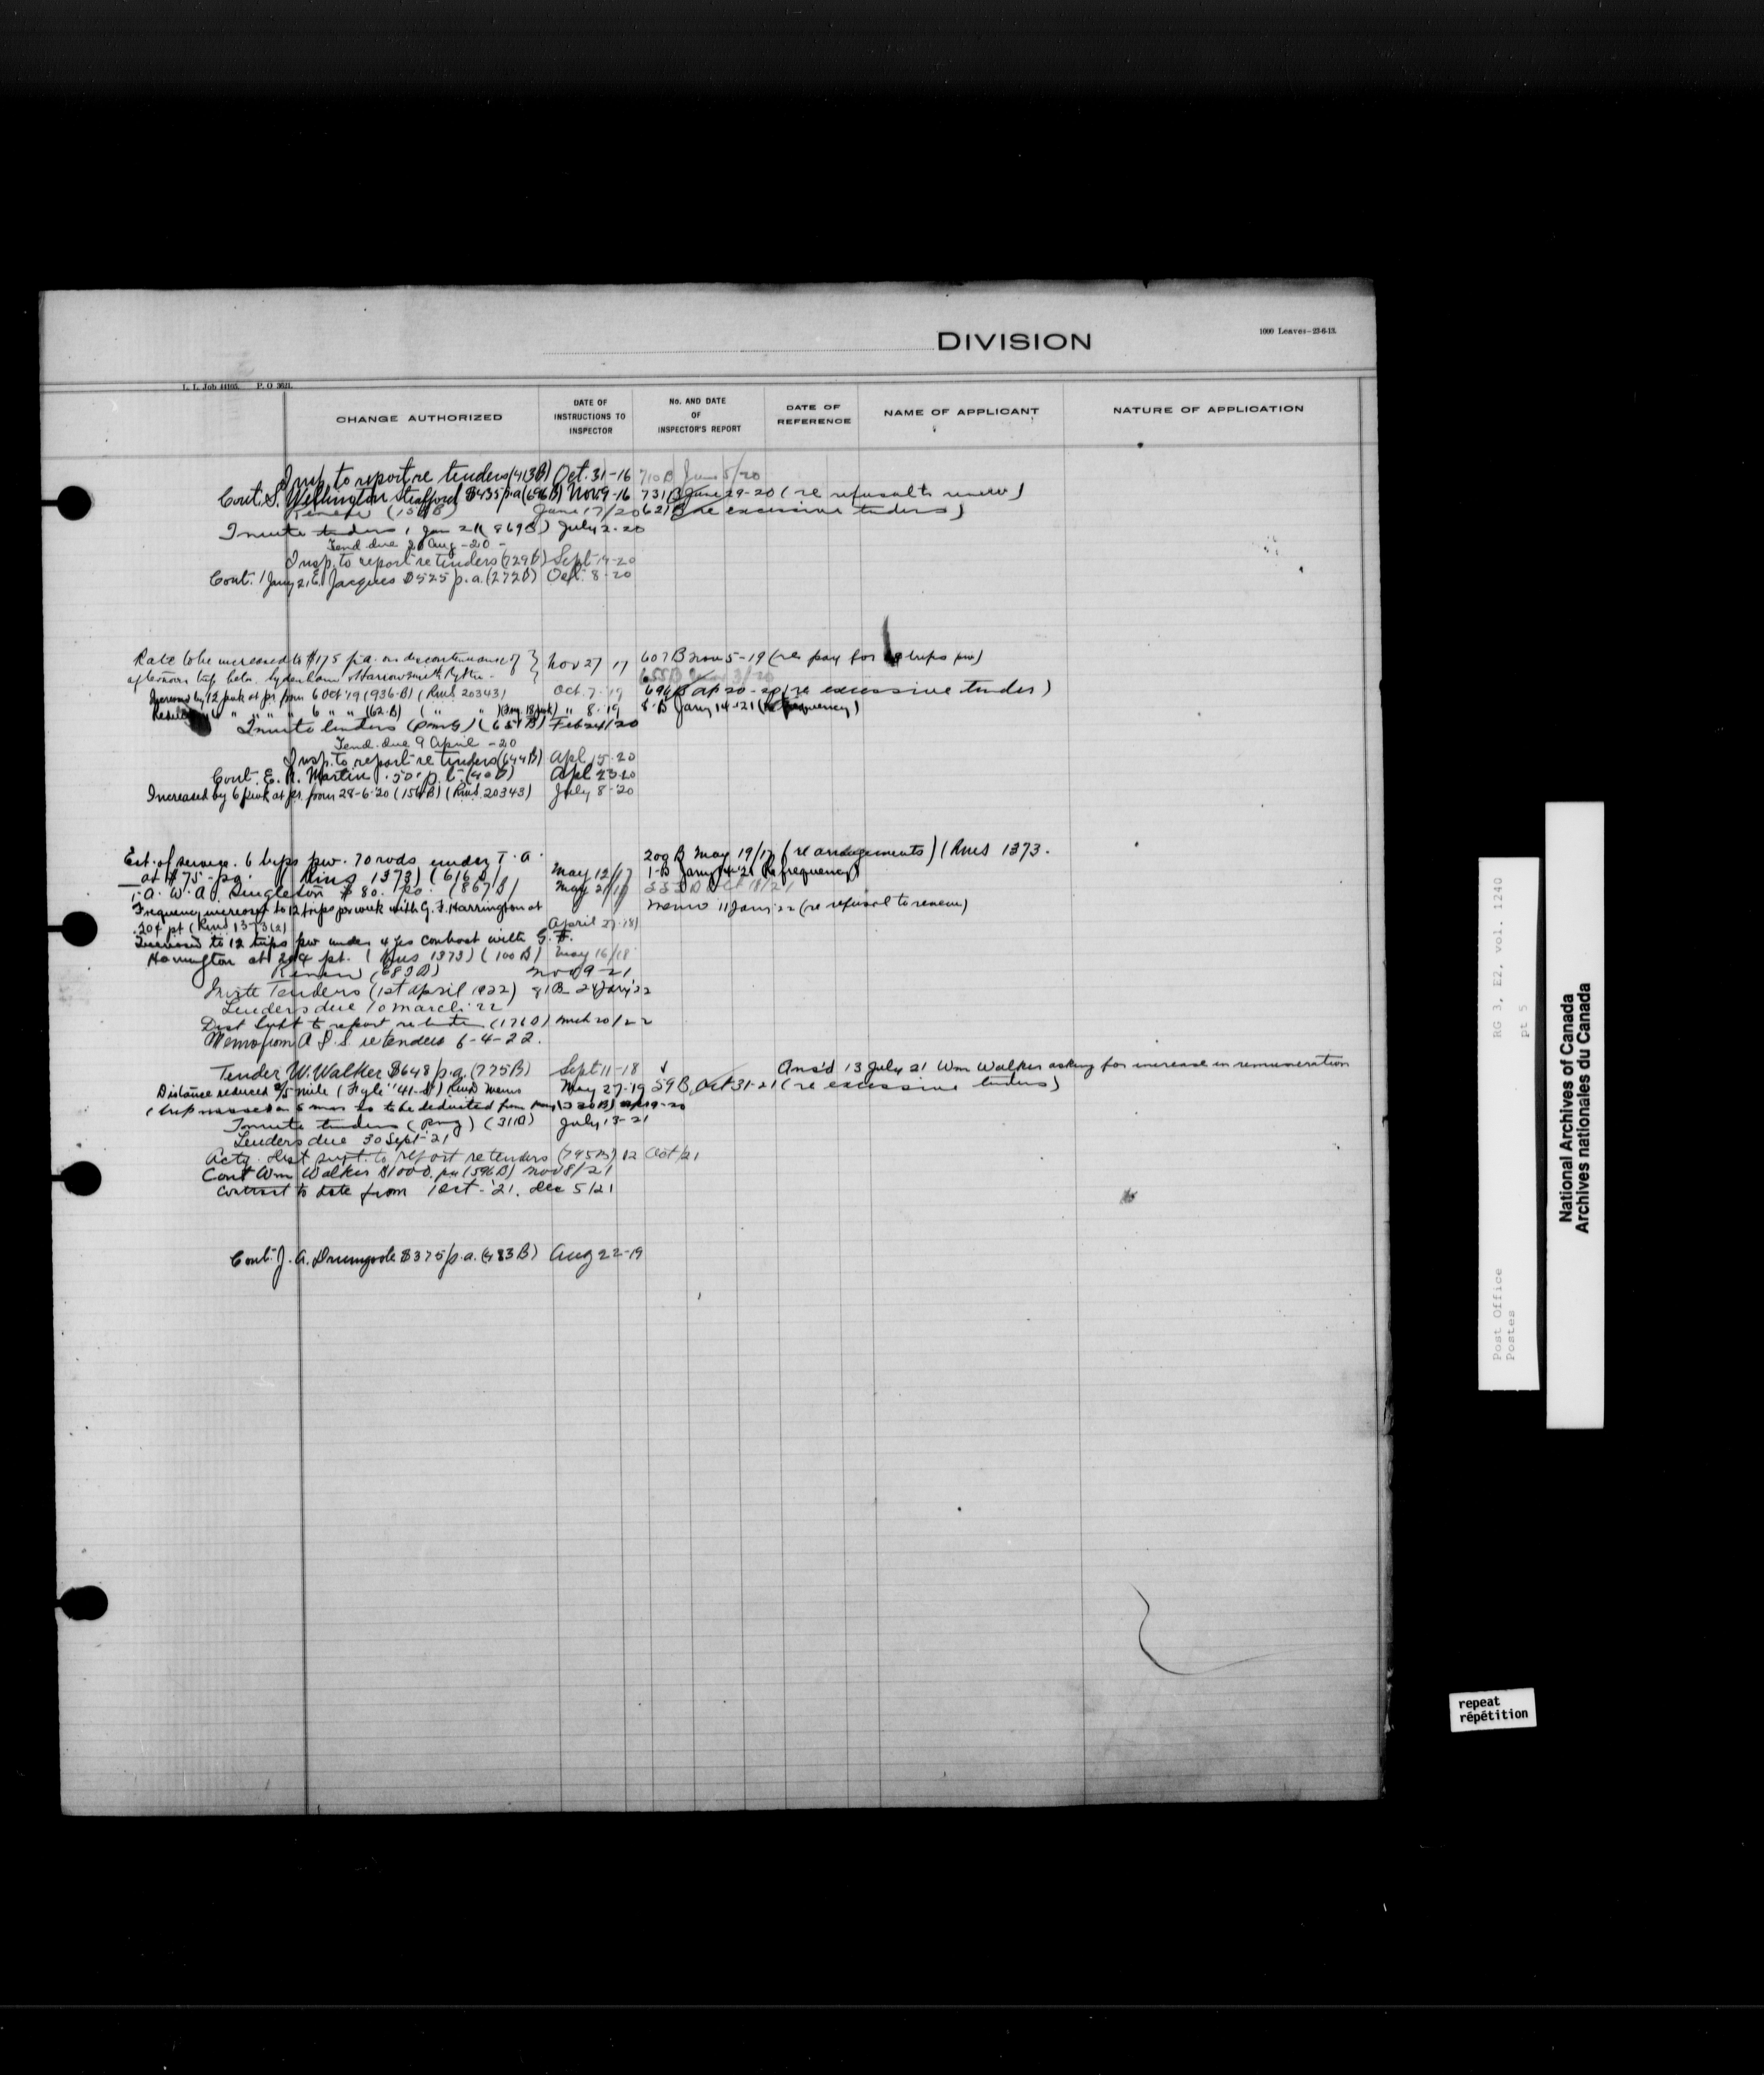 DIVISION
1000 Leaves-23-6-13.
L. L. Job 44105. P. O 3621.
CHANGE AUTHORIZED
DATE OF INSTRUCTIONS TO INSPECTOR
No. AND DATE OF INSPECTOR'S REPORT
DATE OF REFERENCE
NAME OF APPLICANT
NATURE OF APPLICATION
Insp. to report re tenders (413B) Oct. 31-16 710B June 5/20
Cont. S. Wellington Stafford $435 p.a (696B) Nov 9-16 731B June 29-20 (re refusal to renew)
Renew (156B) June 17/20 621B (re excessive tenders)
Invite tenders 1 Jan 21 (869B) July 2-20
Tend due 20 Aug-20-
Insp. to report re tenders (729B) Sept 14-20
Cont. 1 Jany 21 E. Jacques $525 p.a. (272B) Oct. 8-20
Rate to be increased to $175 p.a. on discontinuance of } Nov 27 17 607B Nov 5-19 (re pay for trips pw)
afternoon trip betn. Sydenham & Harrowsmith Ry Stn. 655B 3/20
Increased by 12 pwk at pr from 6 Oct '19 (936-B) (Rms 20343) Oct. 7-19 696B Ap 20-20 (re excessive tender)
" " " " 6 " " (62-B) ( " " ) " 8-19 8-B Jany 14-21 (re frequency)
Invite tenders (pmg) (651B) Feb 24/20
Tend. due 9 April-20
Insp. to report re tenders (644B) Apl 15-20
Cont. E. R. Martin .50 p.t. (40B) Apl 23-20
Increased by 6 pwk at pr. from 28-6-20 (156B) (Rms. 20343) July 8-20
Est. of service. 6 trips pw. 70 rods under T.A. 200 B May 19/17 (re arrangements) (Rms 1373.
at $75- pa. (Rms 1373) (616B) May 12/17 1-B Jany 14-21 (re frequency)
T.A. W. A. Singleton $80. pa. (867B) May 21/17
Frequency increased to 12 trips per week with G. F. Harrington at Memo 11 Jany 22 (re refusal to renew)
20¢ pt (Rms 1373(2) April 27-18)
Increased to 12 trips pw under 4 yrs contract with G. F.
Harrington at 20¢ pt. (Rms 1373) (100B) May 16/18
Renew (683B) Nov 9-21
Invite Tenders (1st April 1922) 91B 24 Jany '22
Tenders due 10 March '22
Dist Supt to report re tenders (176B) Mch 20/22
Memo from A D.S. re tenders 6-4-22.
Tender W. Walker $648 p.a. (775B) Sept 11-18 Ans'd 13 July 21 Wm Walker asking for increase in remuneration
Distance reduced 2/5 mile (Fyle "41-D") Rms Memo May 27-19 59B Oct 31-21 (re excessive tenders)
Invite tenders (pmg) (311B) July 13-21
Tenders due 30 Sept-21
Actg. Dist supt. to report re tenders (795B) 12 Oct/21
Cont Wm Walker $1000. pa (596B) Nov 8/21
Contract to date from 1 Oct-'21. Dec 5/21
Cont. J. A. Drumgoole $375 p.a. (483B) Aug 22-19
RG 3, E2, vol. 1240
pt 5
Post Office
Postes
National Archives of Canada
Archives nationales du Canada
repeat
répétition